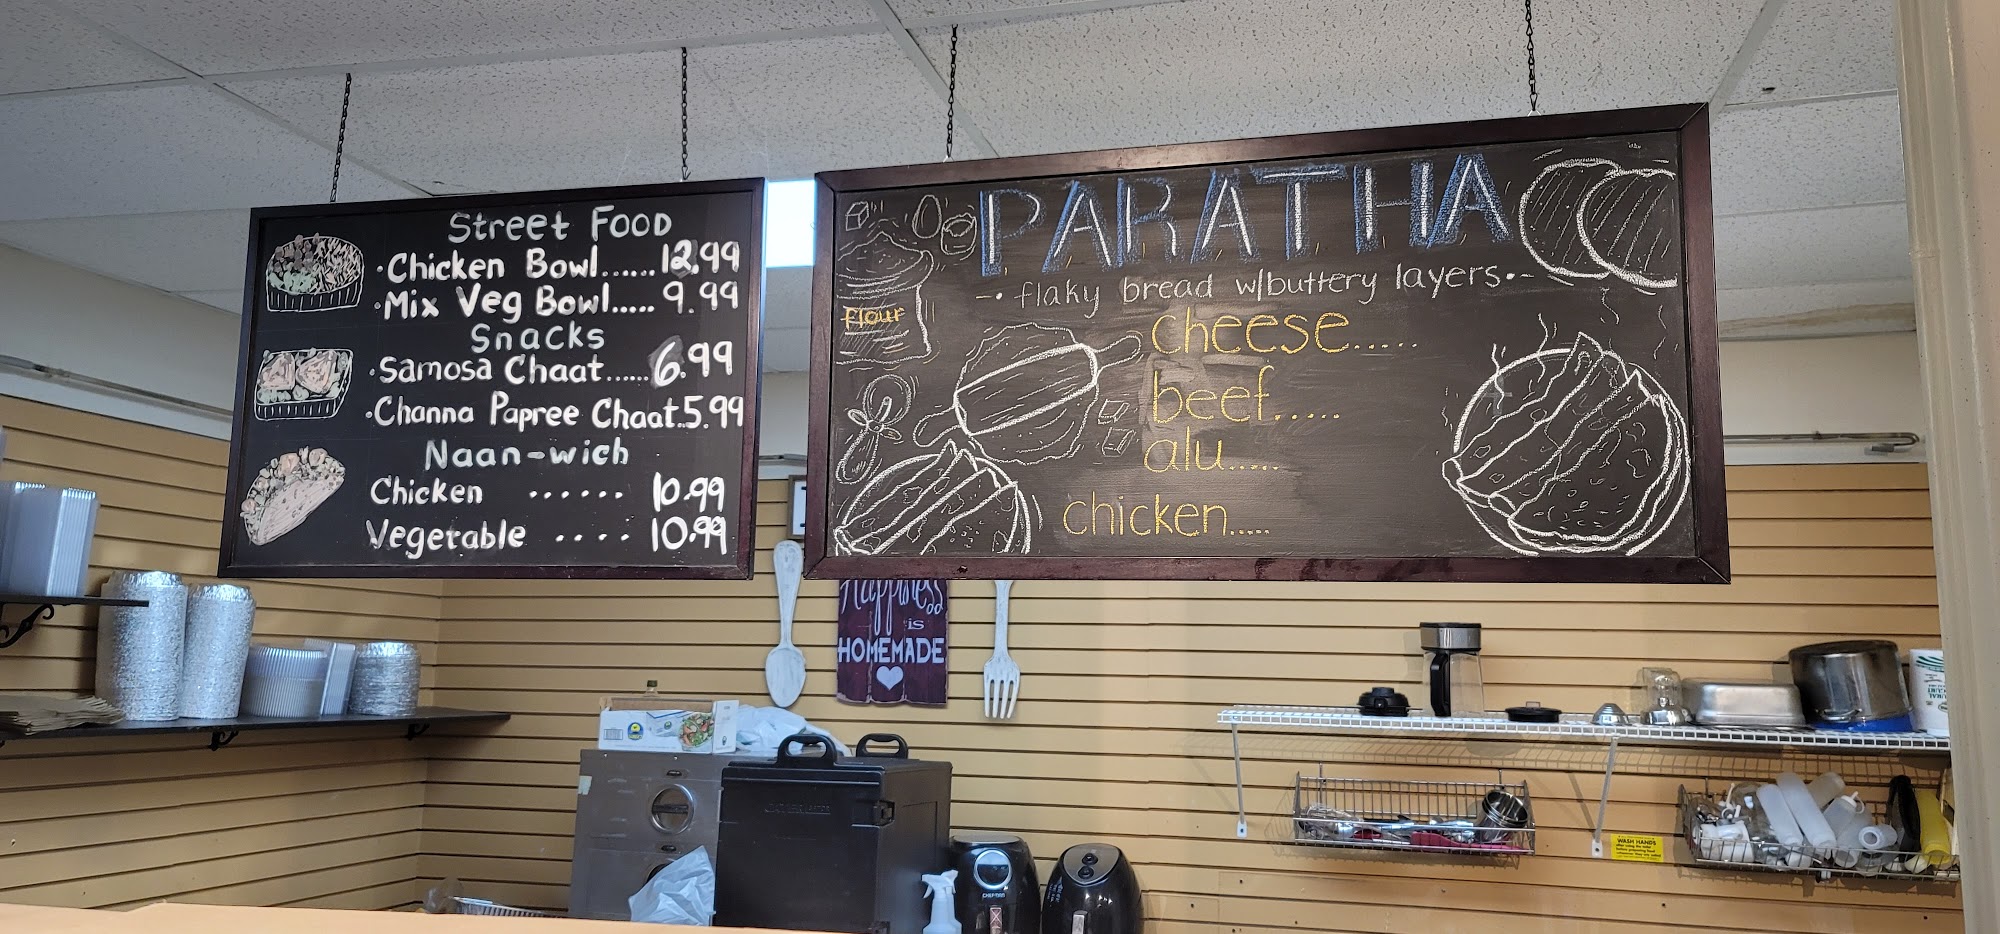 Street Food
·Chicken Bowl......12.99
·Mix Veg Bowl..... 9.99
Snacks
·Samosa Chaat......6.99
·Channa Papree Chaat..5.99
Naan-wich
Chicken ...... 10.99
Vegetable .... 10.99
PARATHA
-• flaky bread w/buttery layers•-
flour
cheese.....
beef.....
alu.....
chicken.....
Happiness
is
HOMEMADE
WASH HANDS